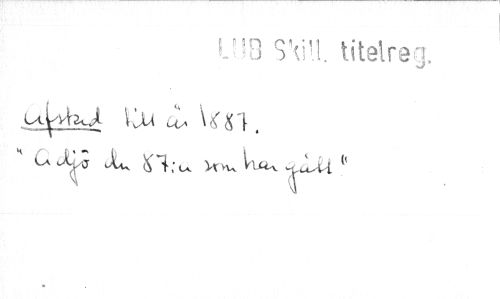 LUB Skill. titelreg.
Afsked till år 1887.
"Adjö du 87:a som har gått"